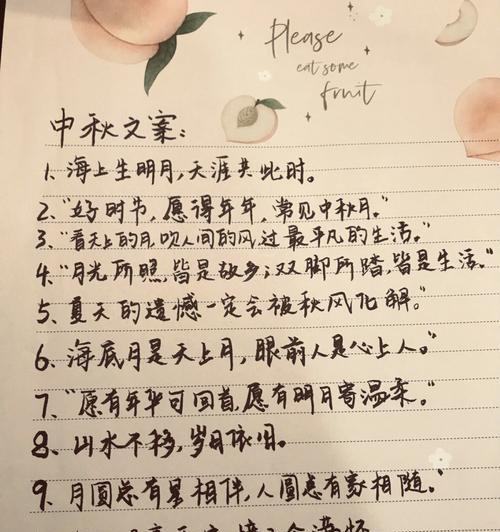 Please
eat some
fruit
中秋文案:
1、海上生明月,天涯共此时。
2、“好时节,愿得年年,常见中秋月。”
3、“看天上的月,吹人间的风,过最平凡的生活。”
4、“月光所照,皆是故乡;双脚所踏,皆是生活。”
5、夏天的遗憾一定会被秋风化解。”
6、海底月是天上月,眼前人是心上人。”
7、“愿有年华可回首,愿有明月寄温柔。”
8、山水不移,岁月依旧。
9、月圆总有星相伴,人圆总有家相随。”